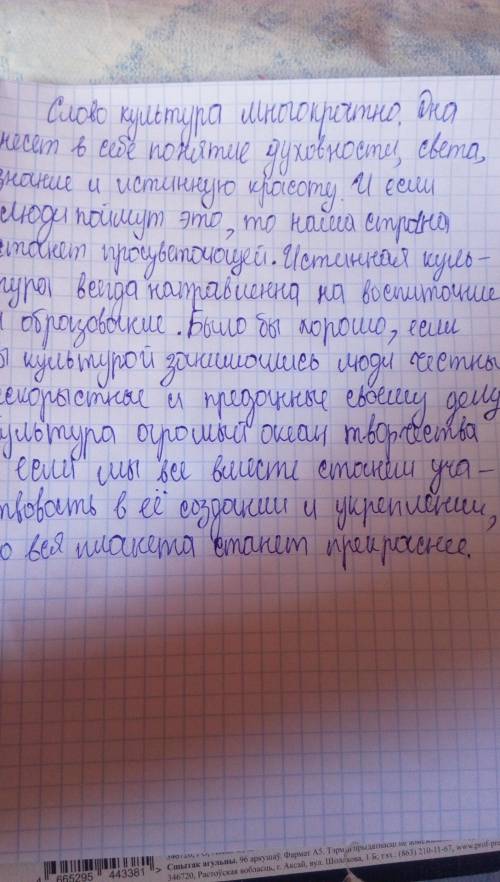 Слово культура многократно. Она
несет в себе понятие духовности, света,
знание и истинную красоту. И если
люди поймут это, то наша страна
станет процветающей. Истинная куль-
тура всегда направленна на воспитание
и образование. Было бы хорошо, если
бы культурой занимались люди честны
ескорыстные и преданные своему делу
культура огромый океан творчества
если мы все вместе станем уча-
твовать в её создании и укреплении,
о вся планета станет прекраснее.
346720, РО,
Термін прыдатнасці не
www.prof-pr
Сшытак агульны. 96 аркушаў. Фармат А5.
346720, Растоўская вобласць, г. Аксай, вул. Шолахава, 1 Б; тэл.: (863) 210-11-67,
4 665295 443381 >